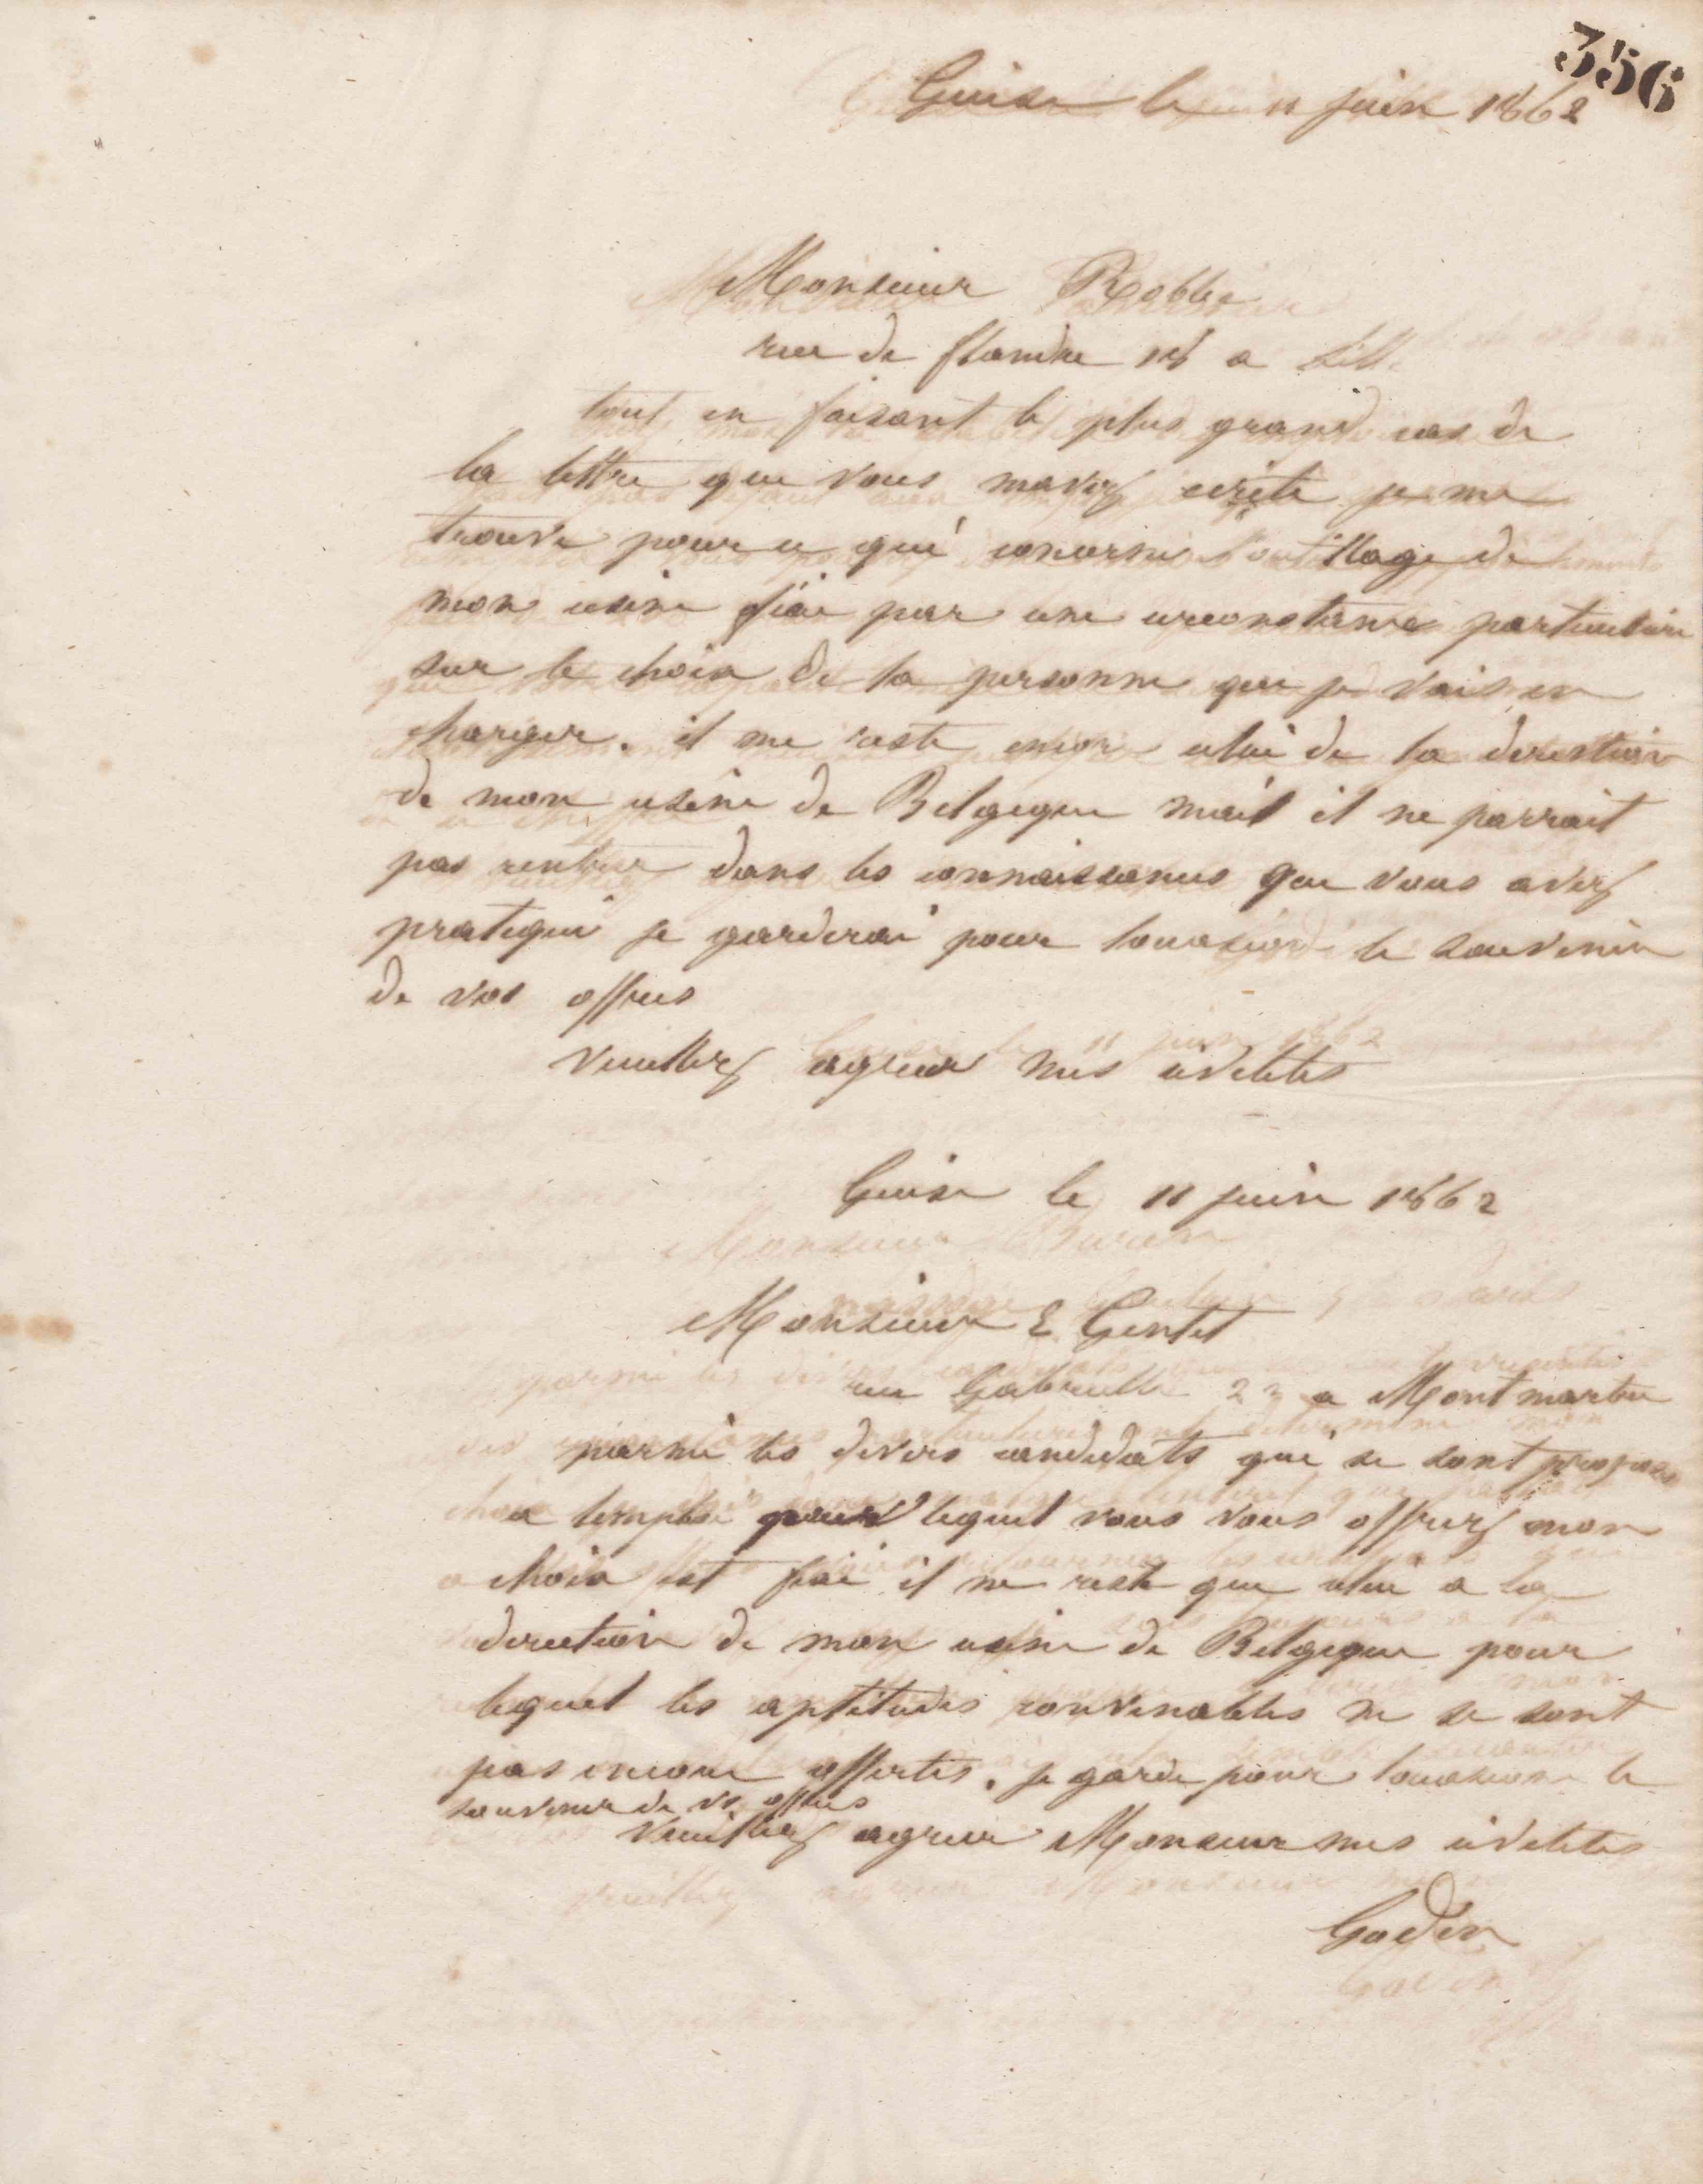 356
Guise le 11 juin 1862
Monsieur Robbe
rue de flandre 18 a Lille
tout en faisant le plus grand cas de
la lettre que vous mavez ecrite je me
trouve pour ce qui concerne l'outillage de
mon usine fixé par une circonstance particulière
sur le choix de la personne que je vais en
charger. il me reste encore celui de la direction
de mon usine de Belgique mais il ne parrait
pas rentrer dans les connaissances que vous avez
pratiqué je garderai pour loccasion le souvenir
de vos offres
veuillez agreer mes civilités
Guise le 11 juin 1862
Monsieur E Gentet
rue Gabrielle 23 a Montmartre
parmi les divers candidats qui se sont proposés
a lemploi pour lequel vous vous offrez mon
choix est fixé il ne reste que celui a la
direction de mon usine de Belgique pour
lequel les aptitudes convenables ne se sont
pas encore offertes. je garde pour loccasion le
souvenir de vos offres
veuillez agreer Monsieur mes civilités
Godin